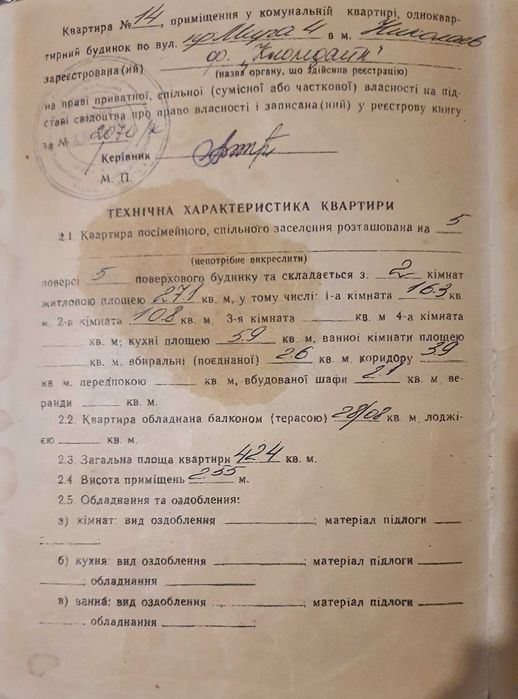 Квартира № 14, приміщення у комунальній квартирі, одноквар-
тирний будинок по вул. пр Мира 4 в м. Николаев
зареєстрована(ий) ф.
(назва органу, що здійснив реєстрацію)
на праві приватної, спільної (сумісної або часткової) власності на під-
ставі свілоцтва про право власності і записана(ний) у реєстрову книгу
за № 2070/к
Керівник
М. П.
ТЕХНІЧНА ХАРАКТЕРИСТИКА КВАРТИРИ
2.1. Квартира посімейного, спільного заселення розташована на 5
(непотрібне викреслити)
поверсі 5 поверхового будинку та складається з: 2 кімнат
житловою площею 27.1 кв. м, у тому числі: 1-а кімната 16.3 кв.
м, 2-а кімната 10.8 кв. м, 3-я кімната ______ кв. м 4-а кімната
______ кв. м; кухні площею 5.9 кв. м, ванної кімнати площею
______ кв. м, вбиральні (поєднаної) 2.6 кв. м, коридору 5.9
кв м. передпокою ______ кв. м, вбудованої шафи 2.1 кв. м. ве-
ранди ______ кв. м.
2.2. Квартира обладнана балконом (терасою) 28/08 кв. м, лоджі-
єю ______ кв. м.
2.3. Загальна площа квартири 42.4 кв. м.
2.4 Висота приміщень 2.55 м.
2.5. Обладнання та оздоблення:
а) кімнат: вид оздоблення ______; матеріал підлоги
______.
б) кухня: вид оздоблення ______; матеріал підлоги ______
______, обладнання ______;
в) ванна: вид оздоблення ______, матеріал підлоги ______
______, обладнання ______;